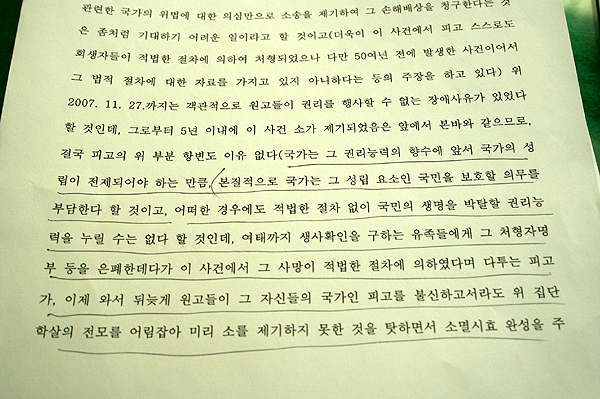 관련한 국가의 위법에 대한 의심만으로 소송을 제기하여 그 손해배상을 청구한다는 것
은 좀처럼 기대하기 어려운 일이라고 할 것이고(더욱이 이 사건에서 피고 스스로도
희생자들이 적법한 절차에 의하여 처형되었으나 다만 50여년 전에 발생한 사건이어서
그 법적 절차에 대한 자료를 가지고 있지 아니하다는 등의 주장을 하고 있다) 위
2007. 11. 27.까지는 객관적으로 원고들이 권리를 행사할 수 없는 장애사유가 있었다
할 것인데, 그로부터 5년 이내에 이 사건 소가 제기되었음은 앞에서 본바와 같으므로,
결국 피고의 위 부분 항변도 이유 없다(국가는 그 권리능력의 향수에 앞서 국가의 성
립이 전제되어야 하는 만큼, 본질적으로 국가는 그 성립 요소인 국민을 보호할 의무를
부담한다 할 것이고, 어떠한 경우에도 적법한 절차 없이 국민의 생명을 박탈할 권리능
력을 누릴 수는 없다 할 것인데, 여태까지 생사확인을 구하는 유족들에게 그 처형자명
부 등을 은폐한데다가 이 사건에서 그 사망이 적법한 절차에 의하였다며 다투는 피고
가, 이제 와서 뒤늦게 원고들이 그 자신들의 국가인 피고를 불신하고서라도 위 집단
학살의 전모를 어림잡아 미리 소를 제기하지 못한 것을 탓하면서 소멸시효 완성을 주